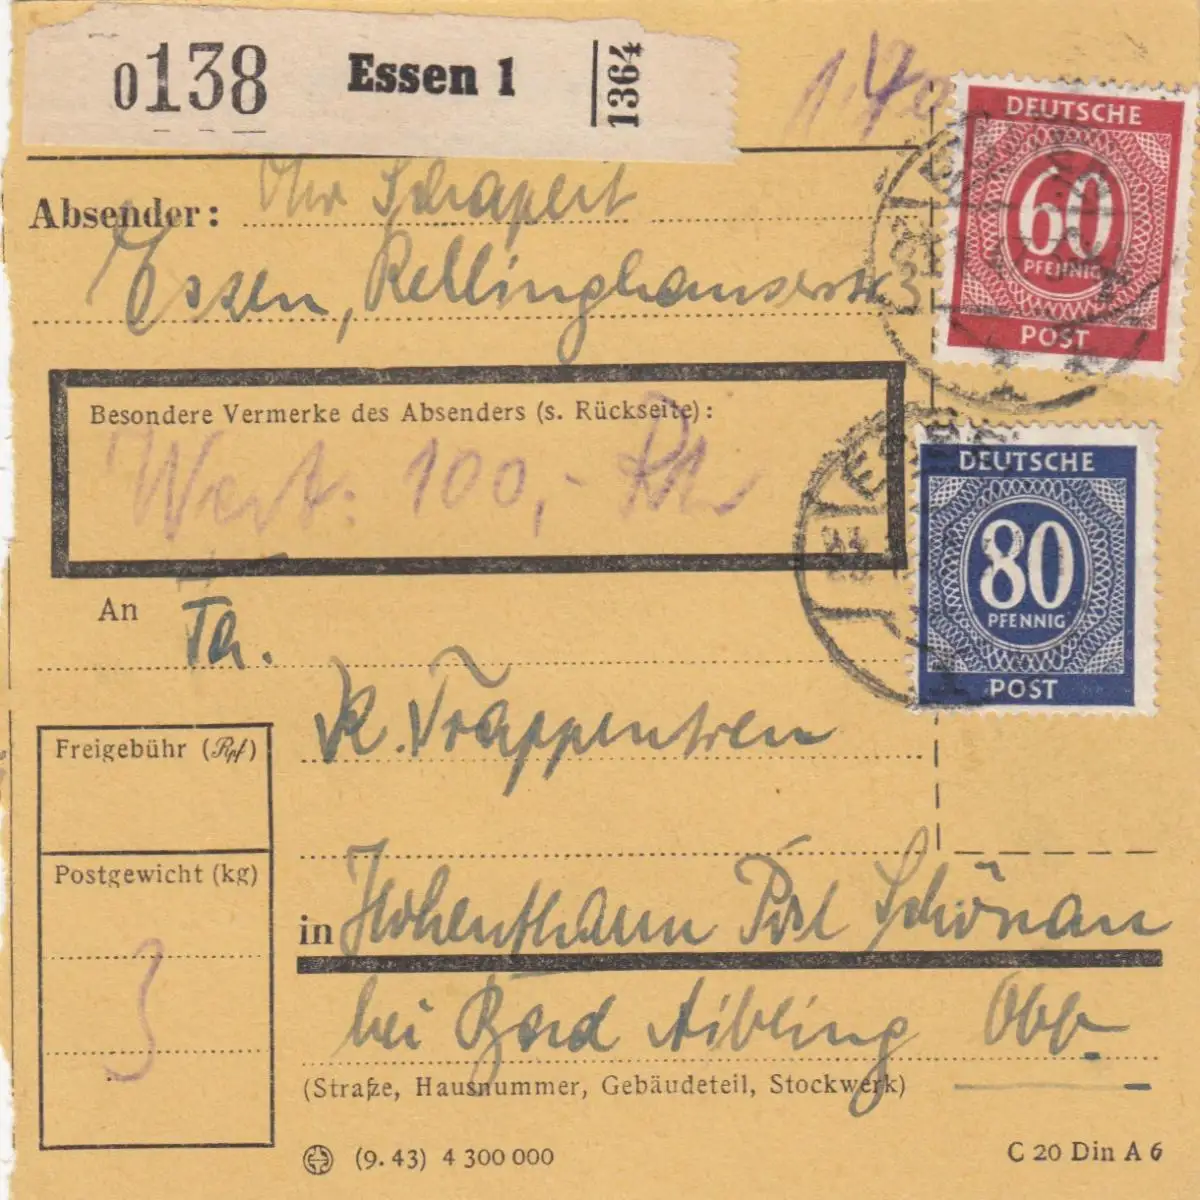 0138 Essen 1 1364
1,40
Absender: Schapeit
Essen, Rellinghauserstr
Besondere Vermerke des Absenders (s. Rückseite):
Wert: 100,- RM
An
Fa.
K. Trappentren
in Hohenthann Post Schönau
bei Bad Aibling Obb
(Straße, Hausnummer, Gebäudeteil, Stockwerk)
Freigebühr (Rpf)
Postgewicht (kg)
3
(9.43) 4 300 000
C 20 Din A 6
DEUTSCHE
60
PFENNIG
POST
DEUTSCHE
80
PFENNIG
POST